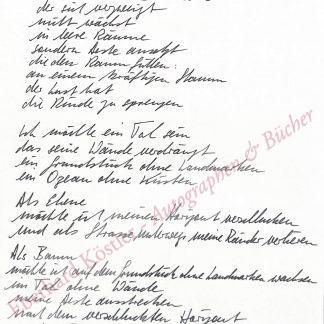 der sich verzweigt
nicht wächst
in leere Räume
sondern Äste ansetzt
die den Raum füllen:
an einem kräftigen Stamm
der Lust hat
die Rinde zu sprengen
Ich möchte ein Tal sein
das seine Wände verdrängt
ein Grundstück ohne Landmarken
ein Ozean ohne Küsten
Als Ebene
möchte ich meinen Horizont verschlucken
und als Strasse unterwegs meine Ränder verlieren
Als Baum
möchte ich auf dem Grundstück ohne Landmarken wachsen
im Tal ohne Wände
meine Äste ausstrecken
nach dem verschluckten Horizont
Eberhard Köstler Autographen & Bücher